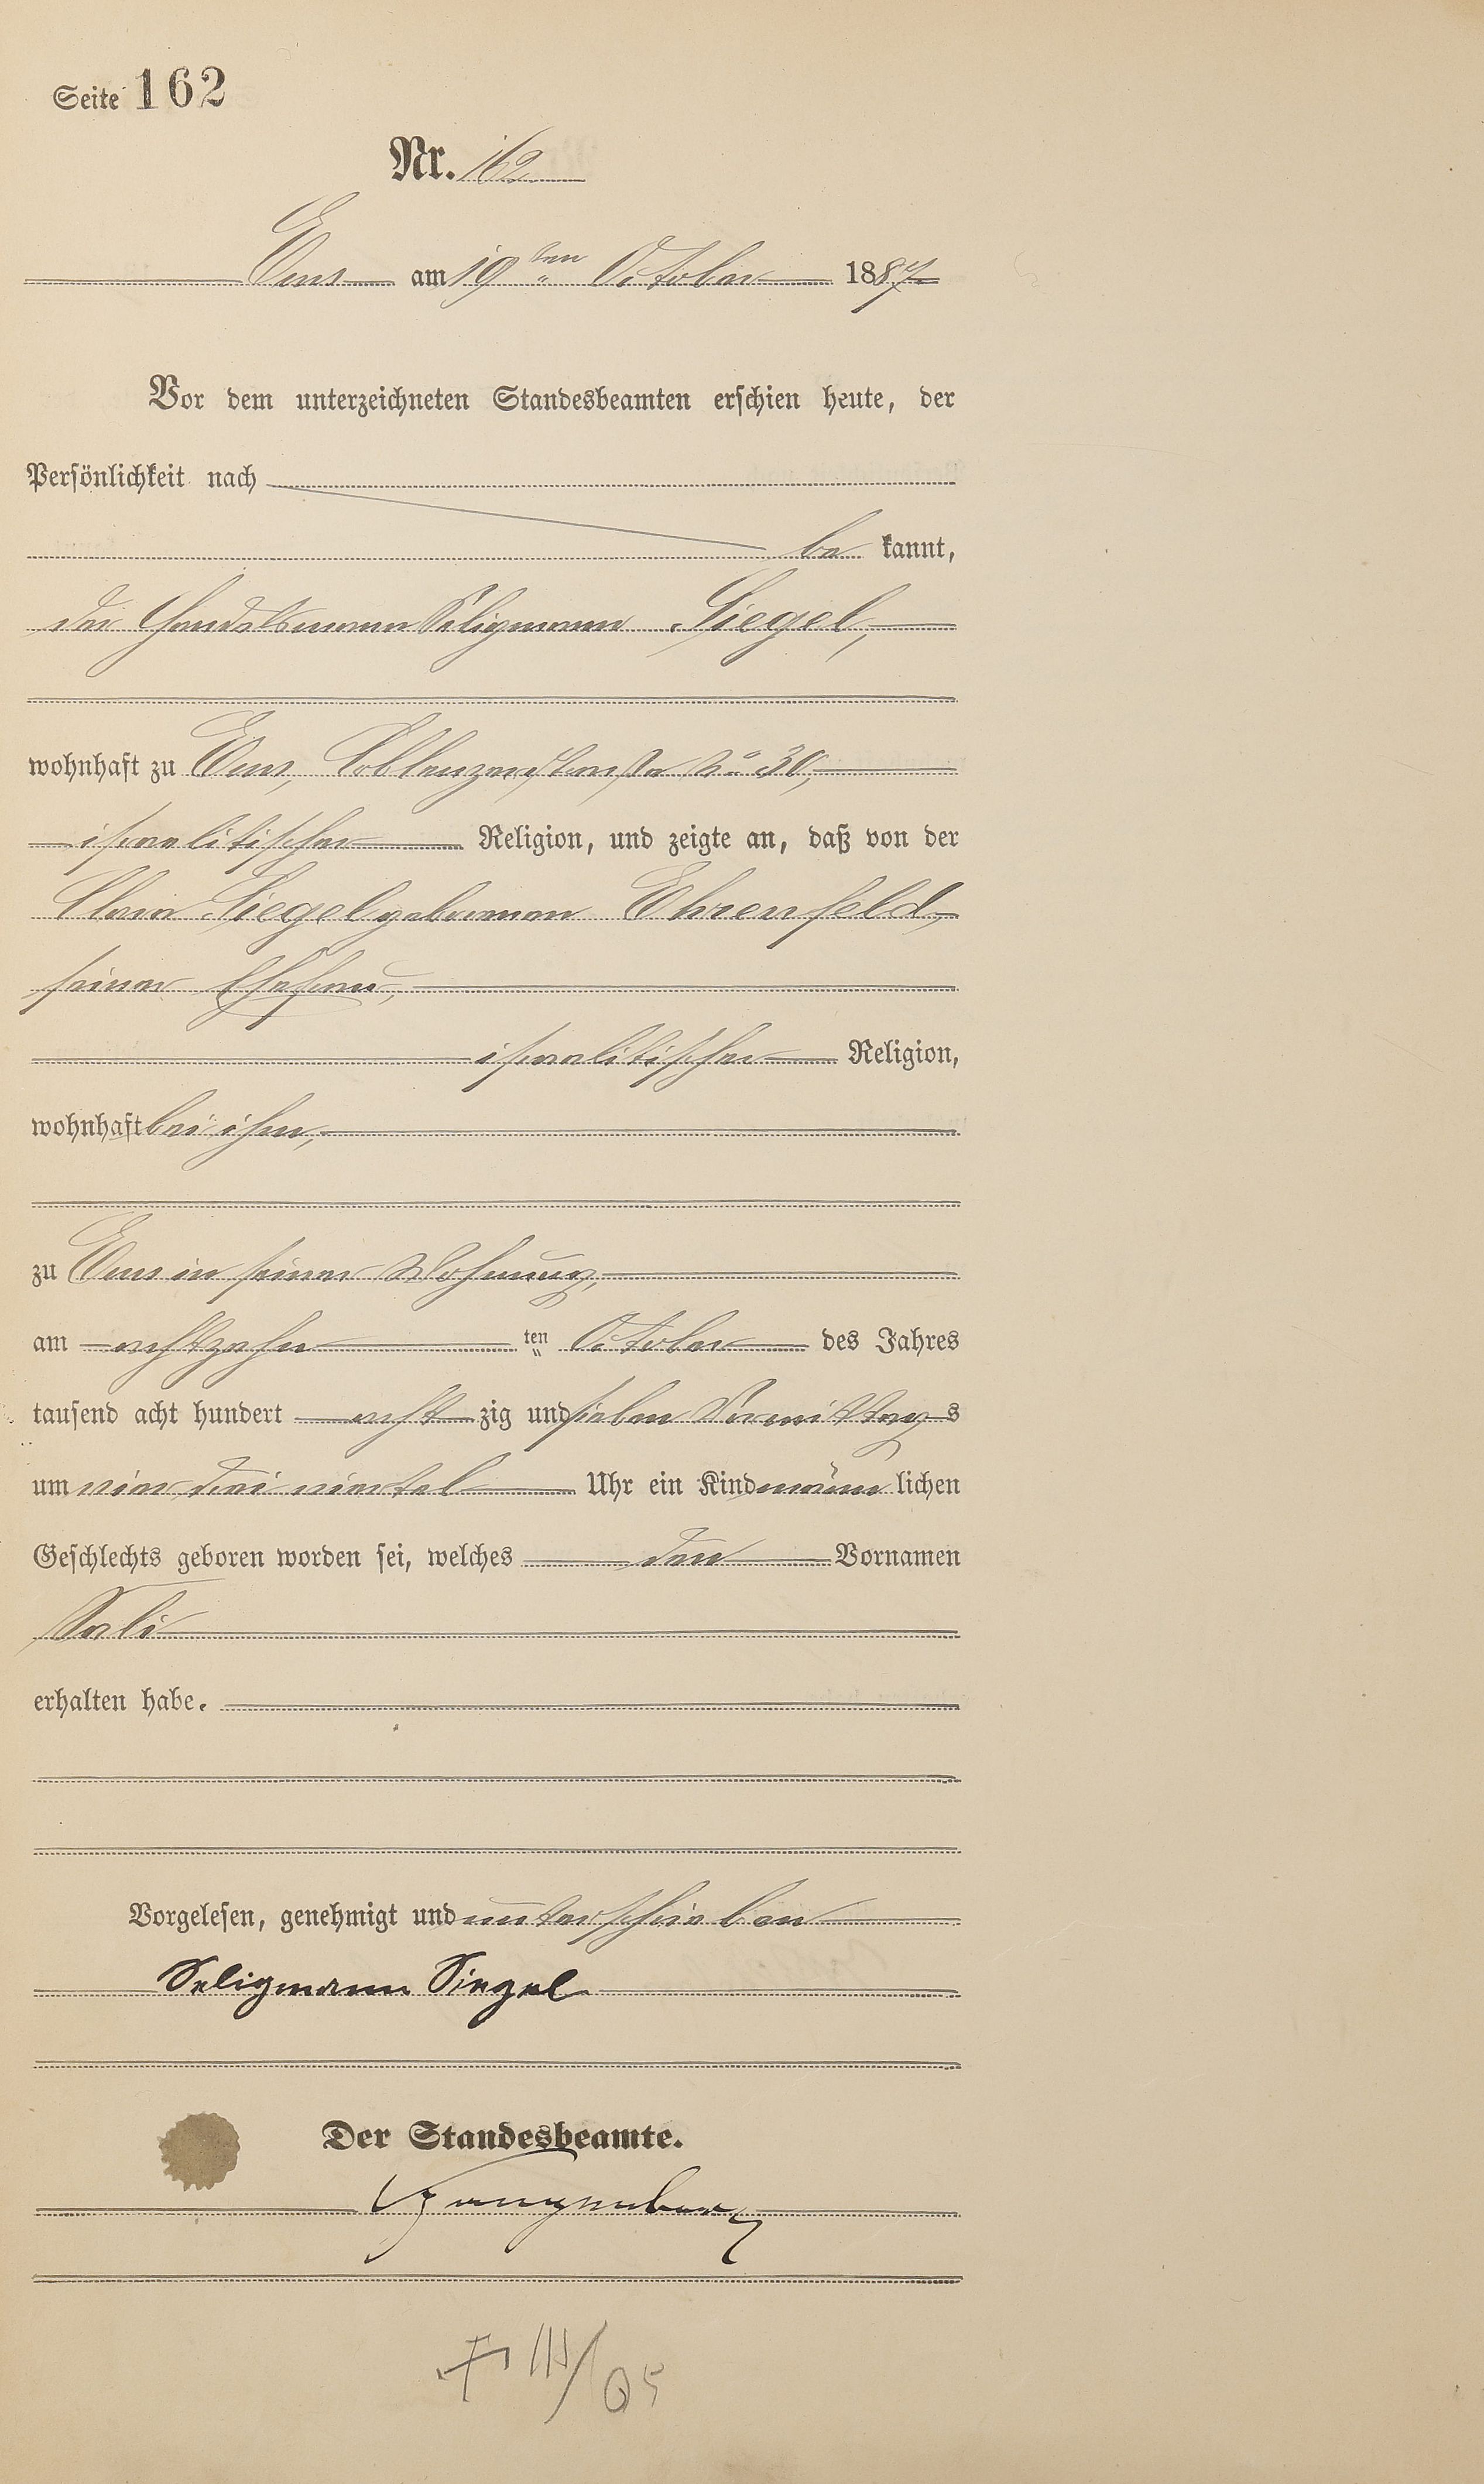 Seite 162
Nr. 162
Ems am 19ten October 1887
Vor dem unterzeichneten Standesbeamten erschien heute, der
Persönlichkeit nach
be kannt,
der Handelsmann Seligmann Siegel,
wohnhaft zu Ems, Coblenzerstraße No 30,
israelitischer Religion, und zeigte an, daß von der
Clara Siegel geborenen Ehrenfeld,
seiner Ehefrau,
israelitischer Religion,
wohnhaft bei ihm,
zu Ems in seiner Wohnung,
am achtzehn ten October des Jahres
tausend acht hundert acht zig und sieben Vormittags
um vier drei viertel Uhr ein Kind männ lichen
Geschlechts geboren worden sei, welches den Vornamen
Sali
erhalten habe.
Vorgelesen, genehmigt und unterschrieben
Seligmann Siegel
Der Standesbeamte.
III/05